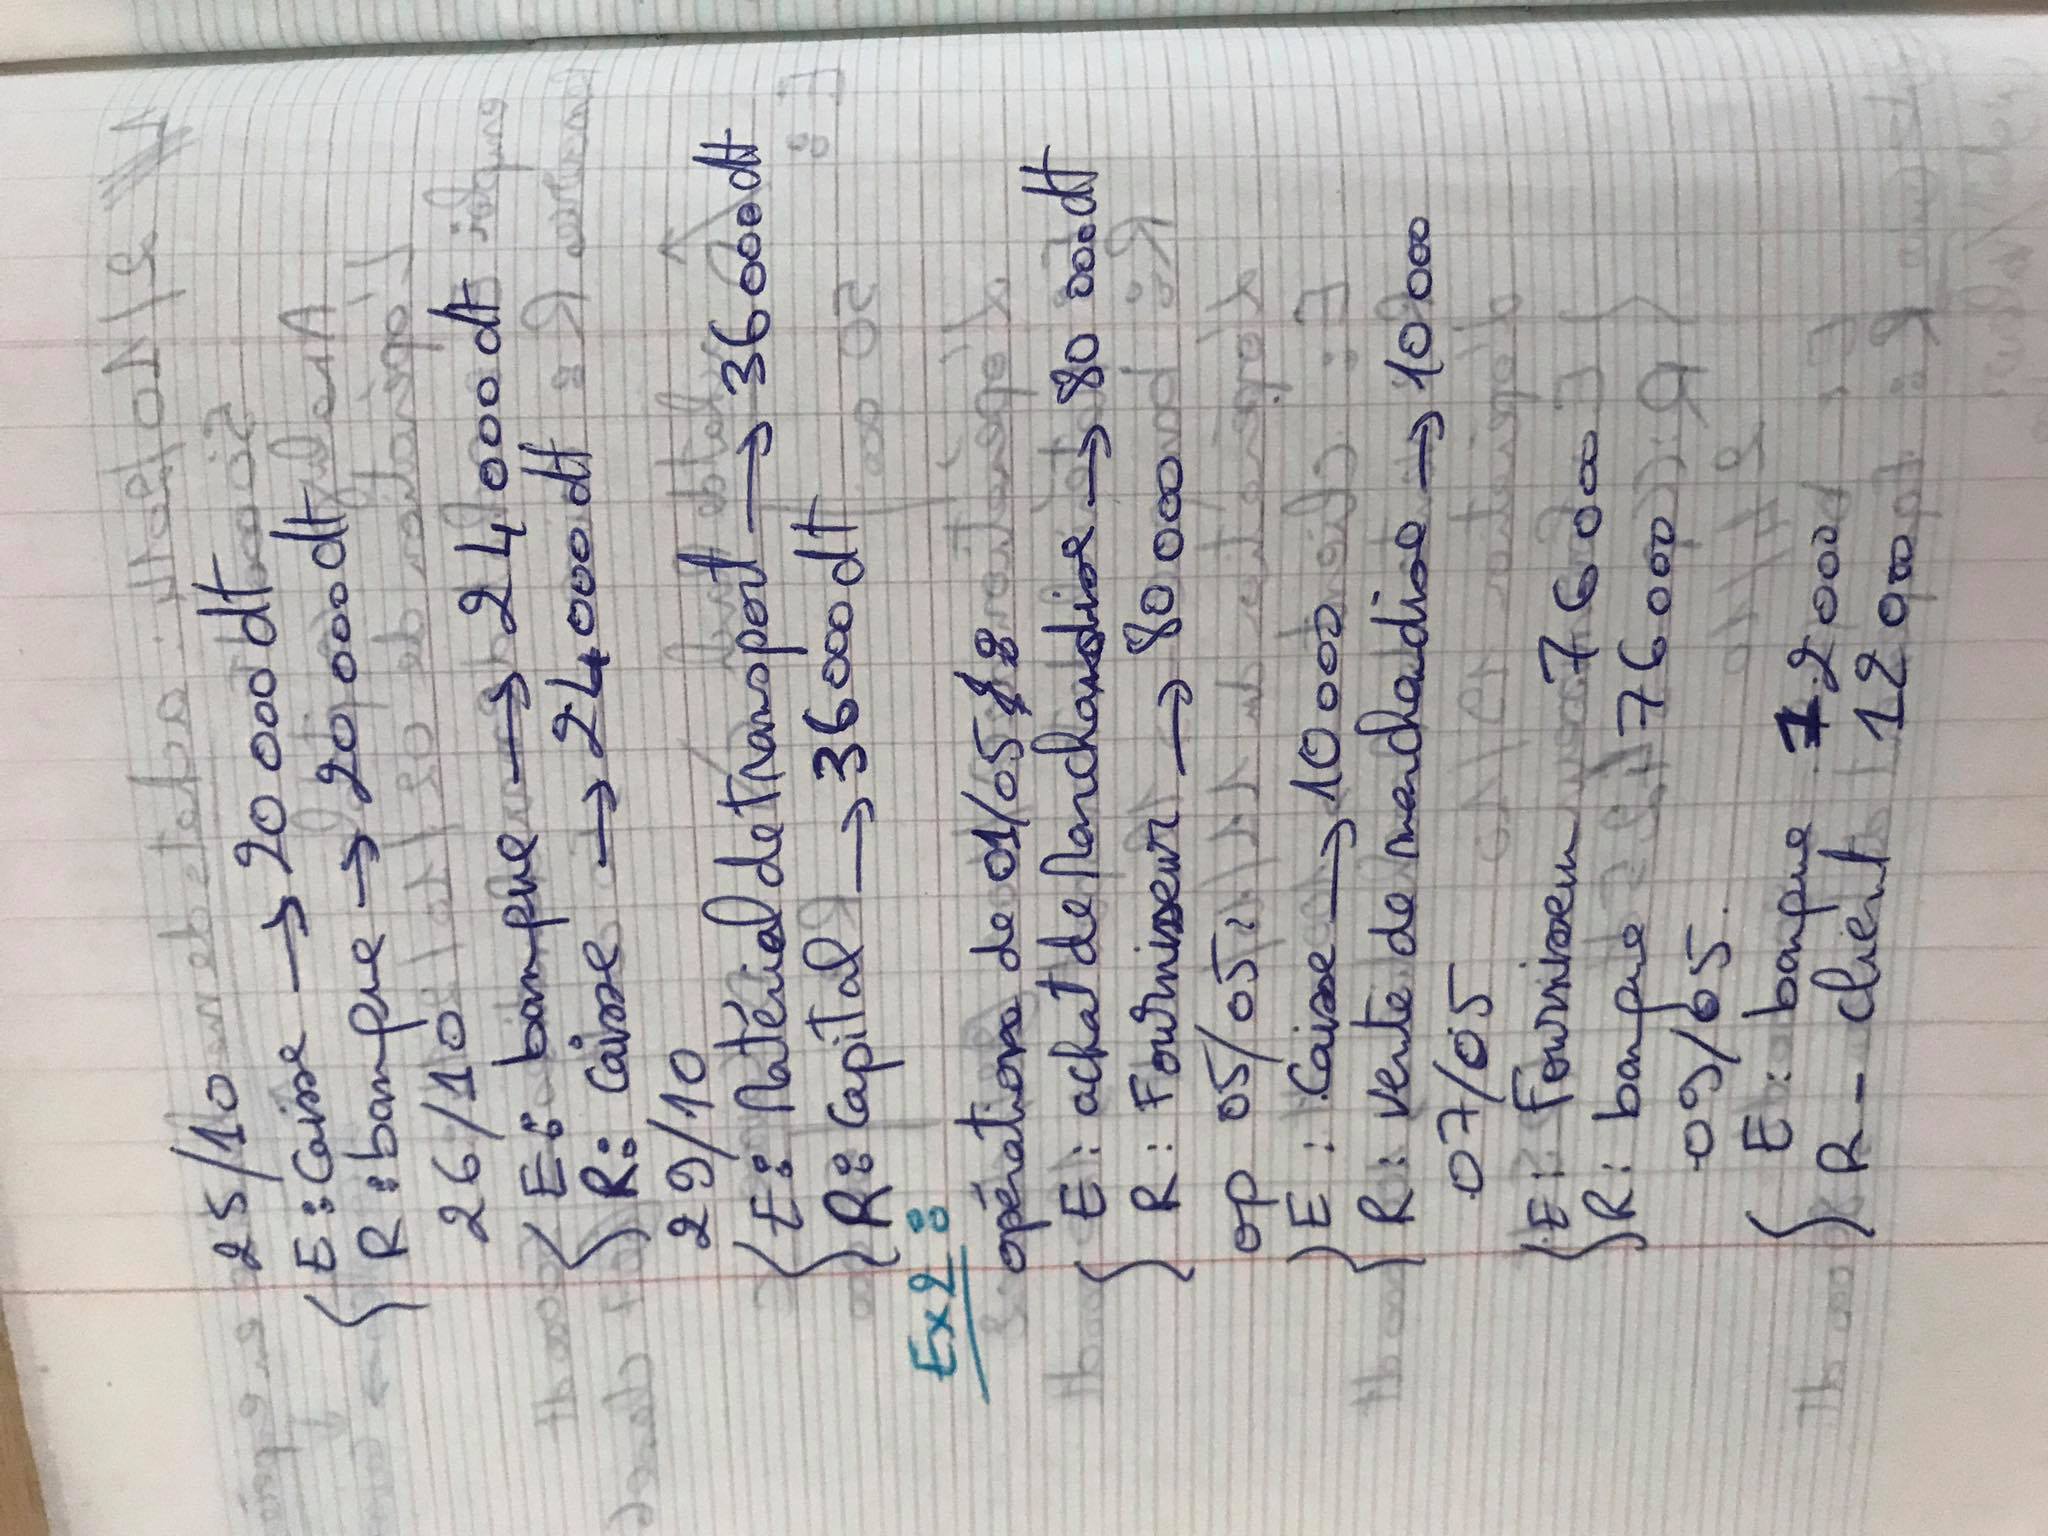 25/10
E : Caisse → 20 000 dt
R : banque → 20 000 dt
26/10
E : banque → 24 000 dt
R : Caisse → 24 000 dt
29/10
E : Matériel de transport → 36 000 dt
R : Capital → 36 000 dt
Ex2 :
opérations de 01/05
E : achat de Marchandise → 80 000 dt
R : Fournisseur → 80 000
op 05/05 :
E : Caisse → 10 000
R : vente de marchandise → 10 000
07/05
E : Fournisseur 76 000
R : banque 76 000
09/05.
E : banque 12 000
R - client 12 000